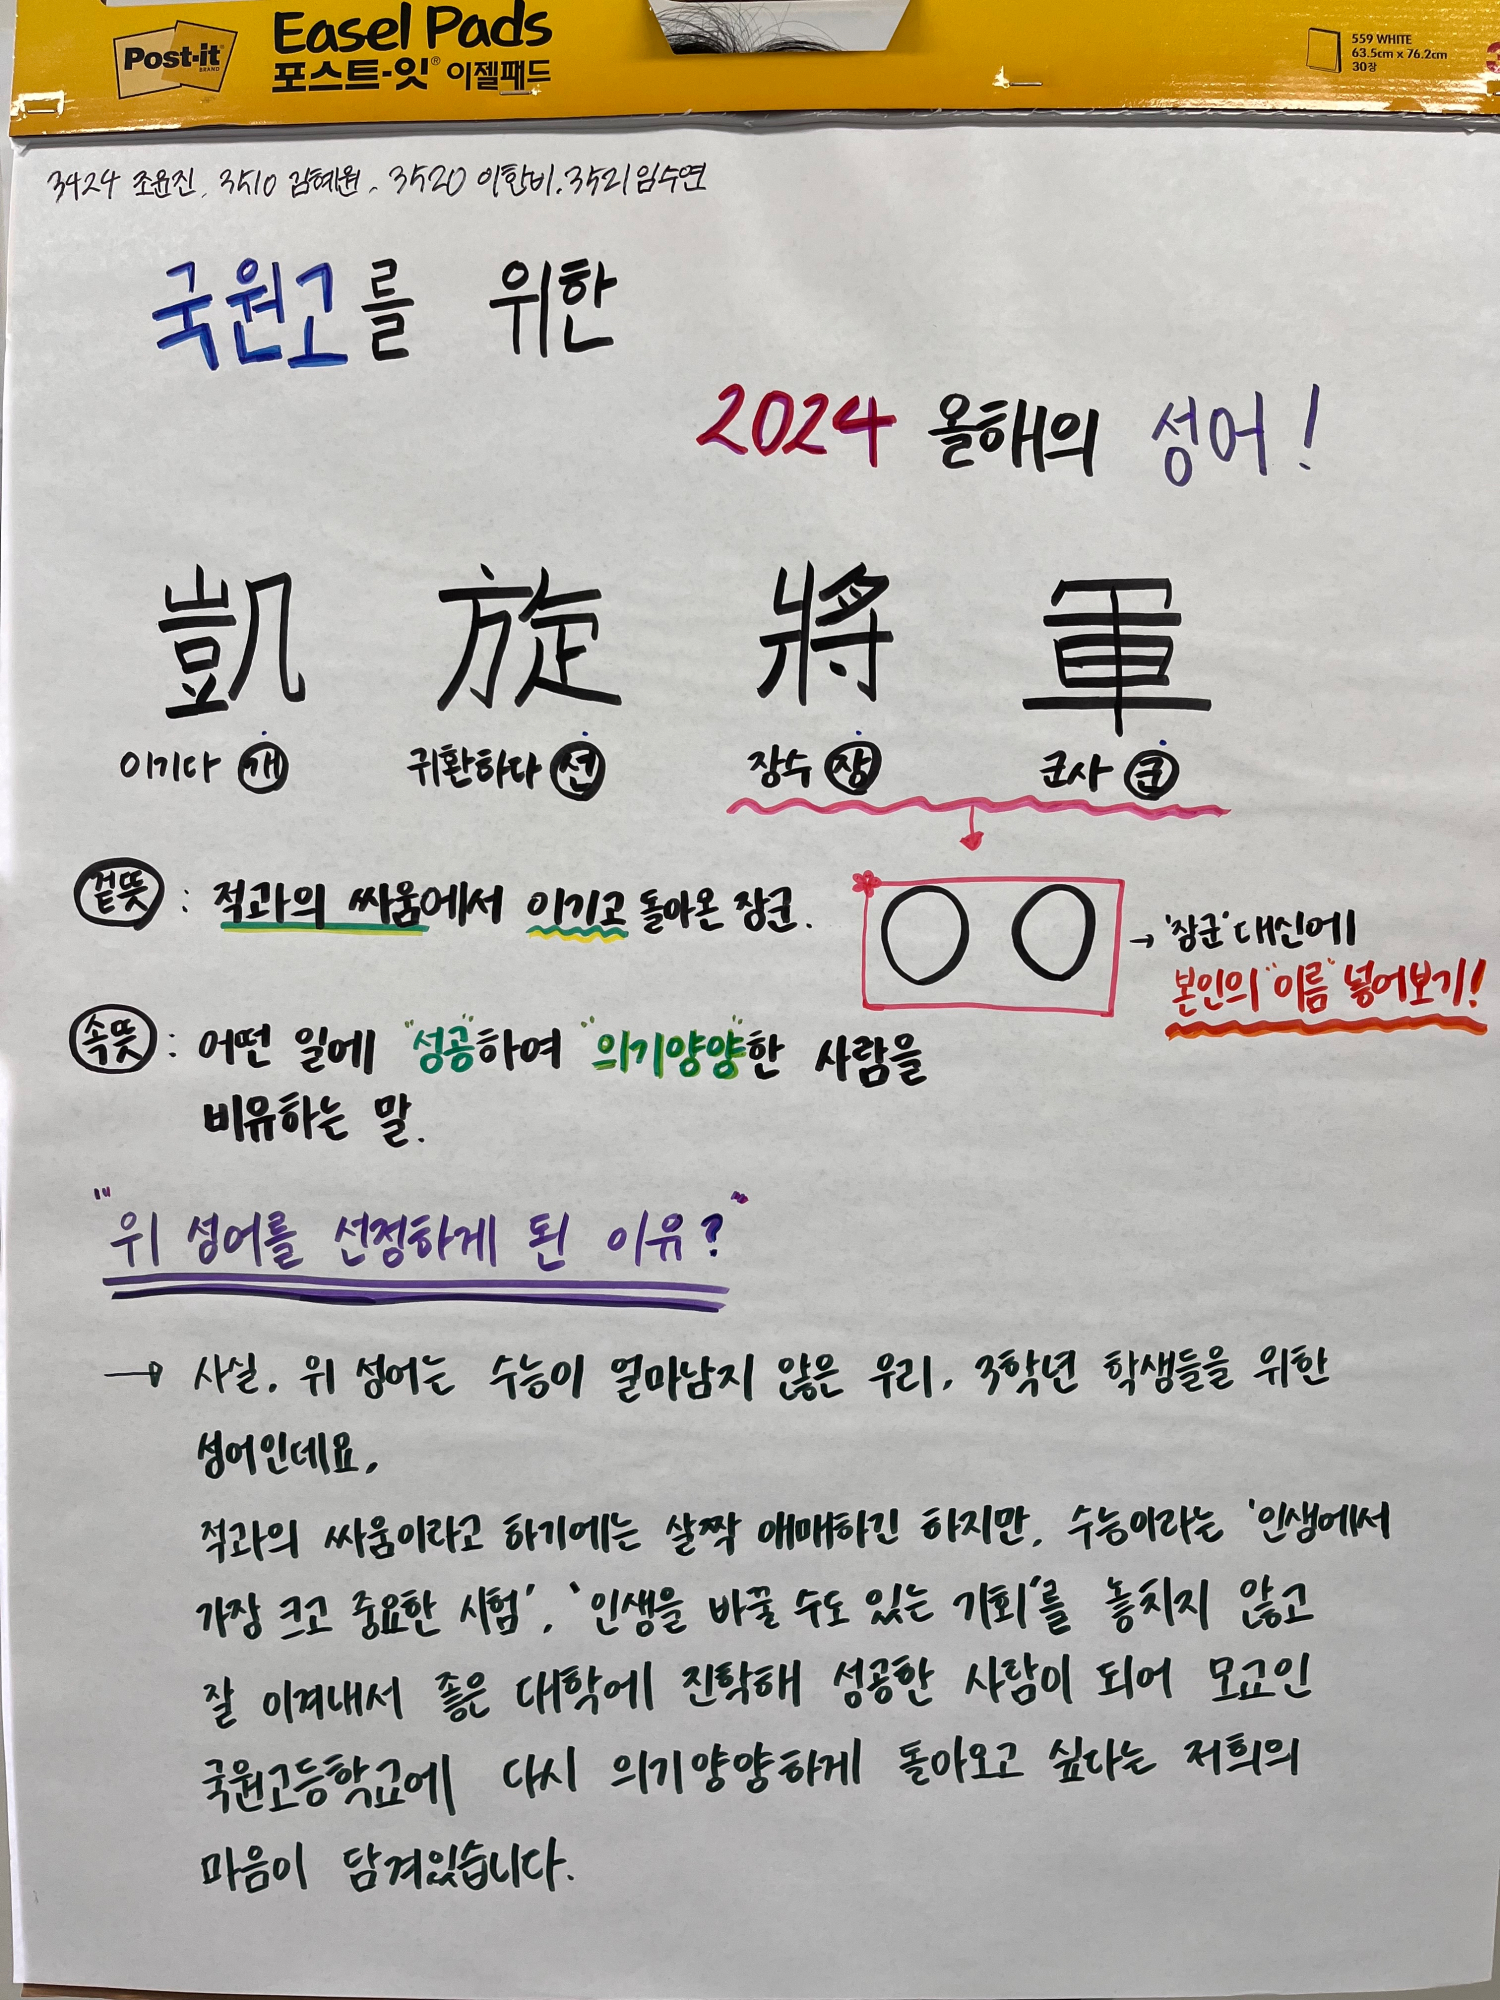 Post-it
BRAND
Easel Pads
포스트-잇® 이젤패드
559 WHITE
63.5cm x 76.2cm
30장
3424 조윤진, 3510 김혜원, 3520 이환비, 3521 임수연
국원고를 위한
2024 올해의 성어!
凱 旋 將 軍
이기다 개 귀환하다 선 장수 장 군사 군
겉뜻 : 적과의 싸움에서 이기고 돌아온 장군.
→ '장군' 대신에
본인의 "이름" 넣어보기!
속뜻 : 어떤 일에 "성공"하여 "의기양양"한 사람을
비유하는 말.
"위 성어를 선정하게 된 이유?"
→ 사실, 위 성어는 수능이 얼마남지 않은 우리, 3학년 학생들을 위한
성어인데요,
적과의 싸움이라고 하기에는 살짝 애매하긴 하지만, 수능이라는 '인생에서
가장 크고 중요한 시험', '인생을 바꿀 수도 있는 기회'를 놓치지 않고
잘 이겨내서 좋은 대학에 진학해 성공한 사람이 되어 모교인
국원고등학교에 다시 의기양양하게 돌아오고 싶다는 저희의
마음이 담겨있습니다.